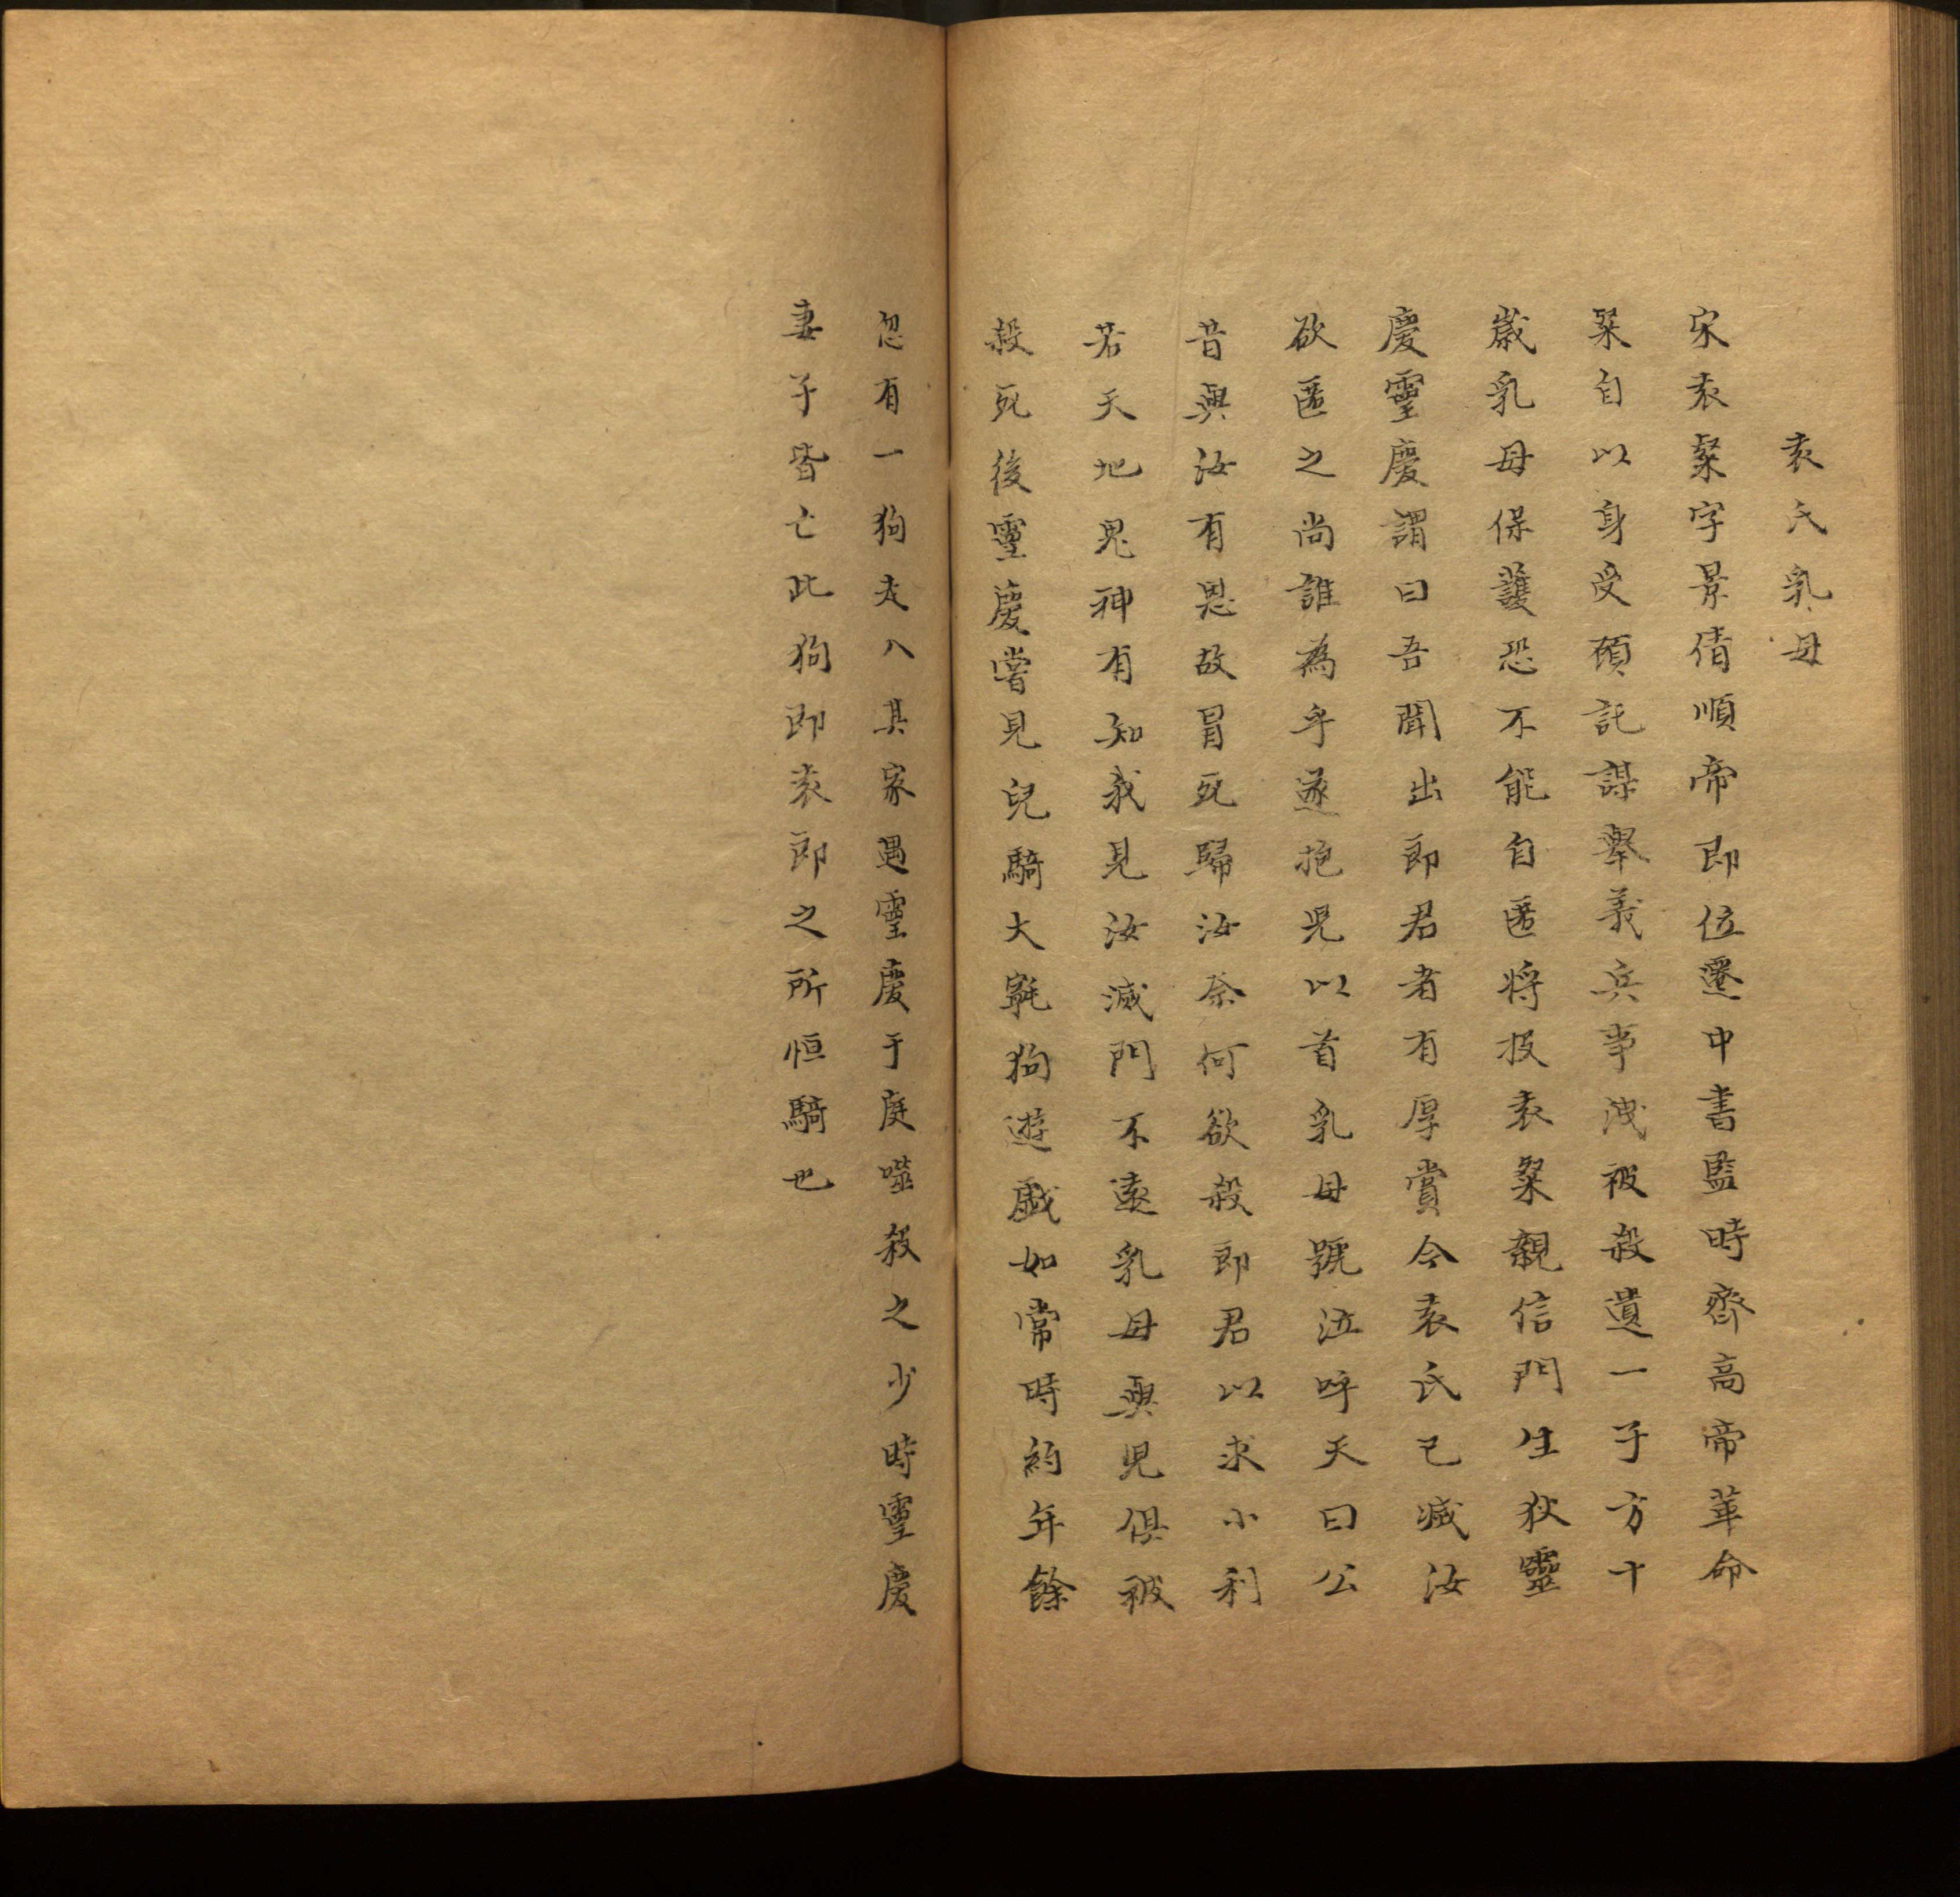 袁氏乳母
宋袁粲字景倩順帝即位遷中書監時齊高帝革命
粲自以身受顧託謀舉義兵事洩被殺遺一子方十
歲乳母保護恐不能自匿將投袁粲親信門生狄靈
慶靈慶謂曰吾聞出郎君者有厚賞今袁氏已滅汝
欲匿之尚誰為乎遂抱兒以首乳母號泣呼天曰公
昔與汝有恩故冒死歸汝奈何欲殺郎君以求小利
若天地鬼神有知我見汝滅門不遠乳母與兒俱被
殺死後靈慶嘗見兒騎大氄狗遊戲如常時約年餘
忽有一狗走入其家遇靈慶于庭噬殺之少時靈慶
妻子皆亡此狗即袁郎之所恒騎也